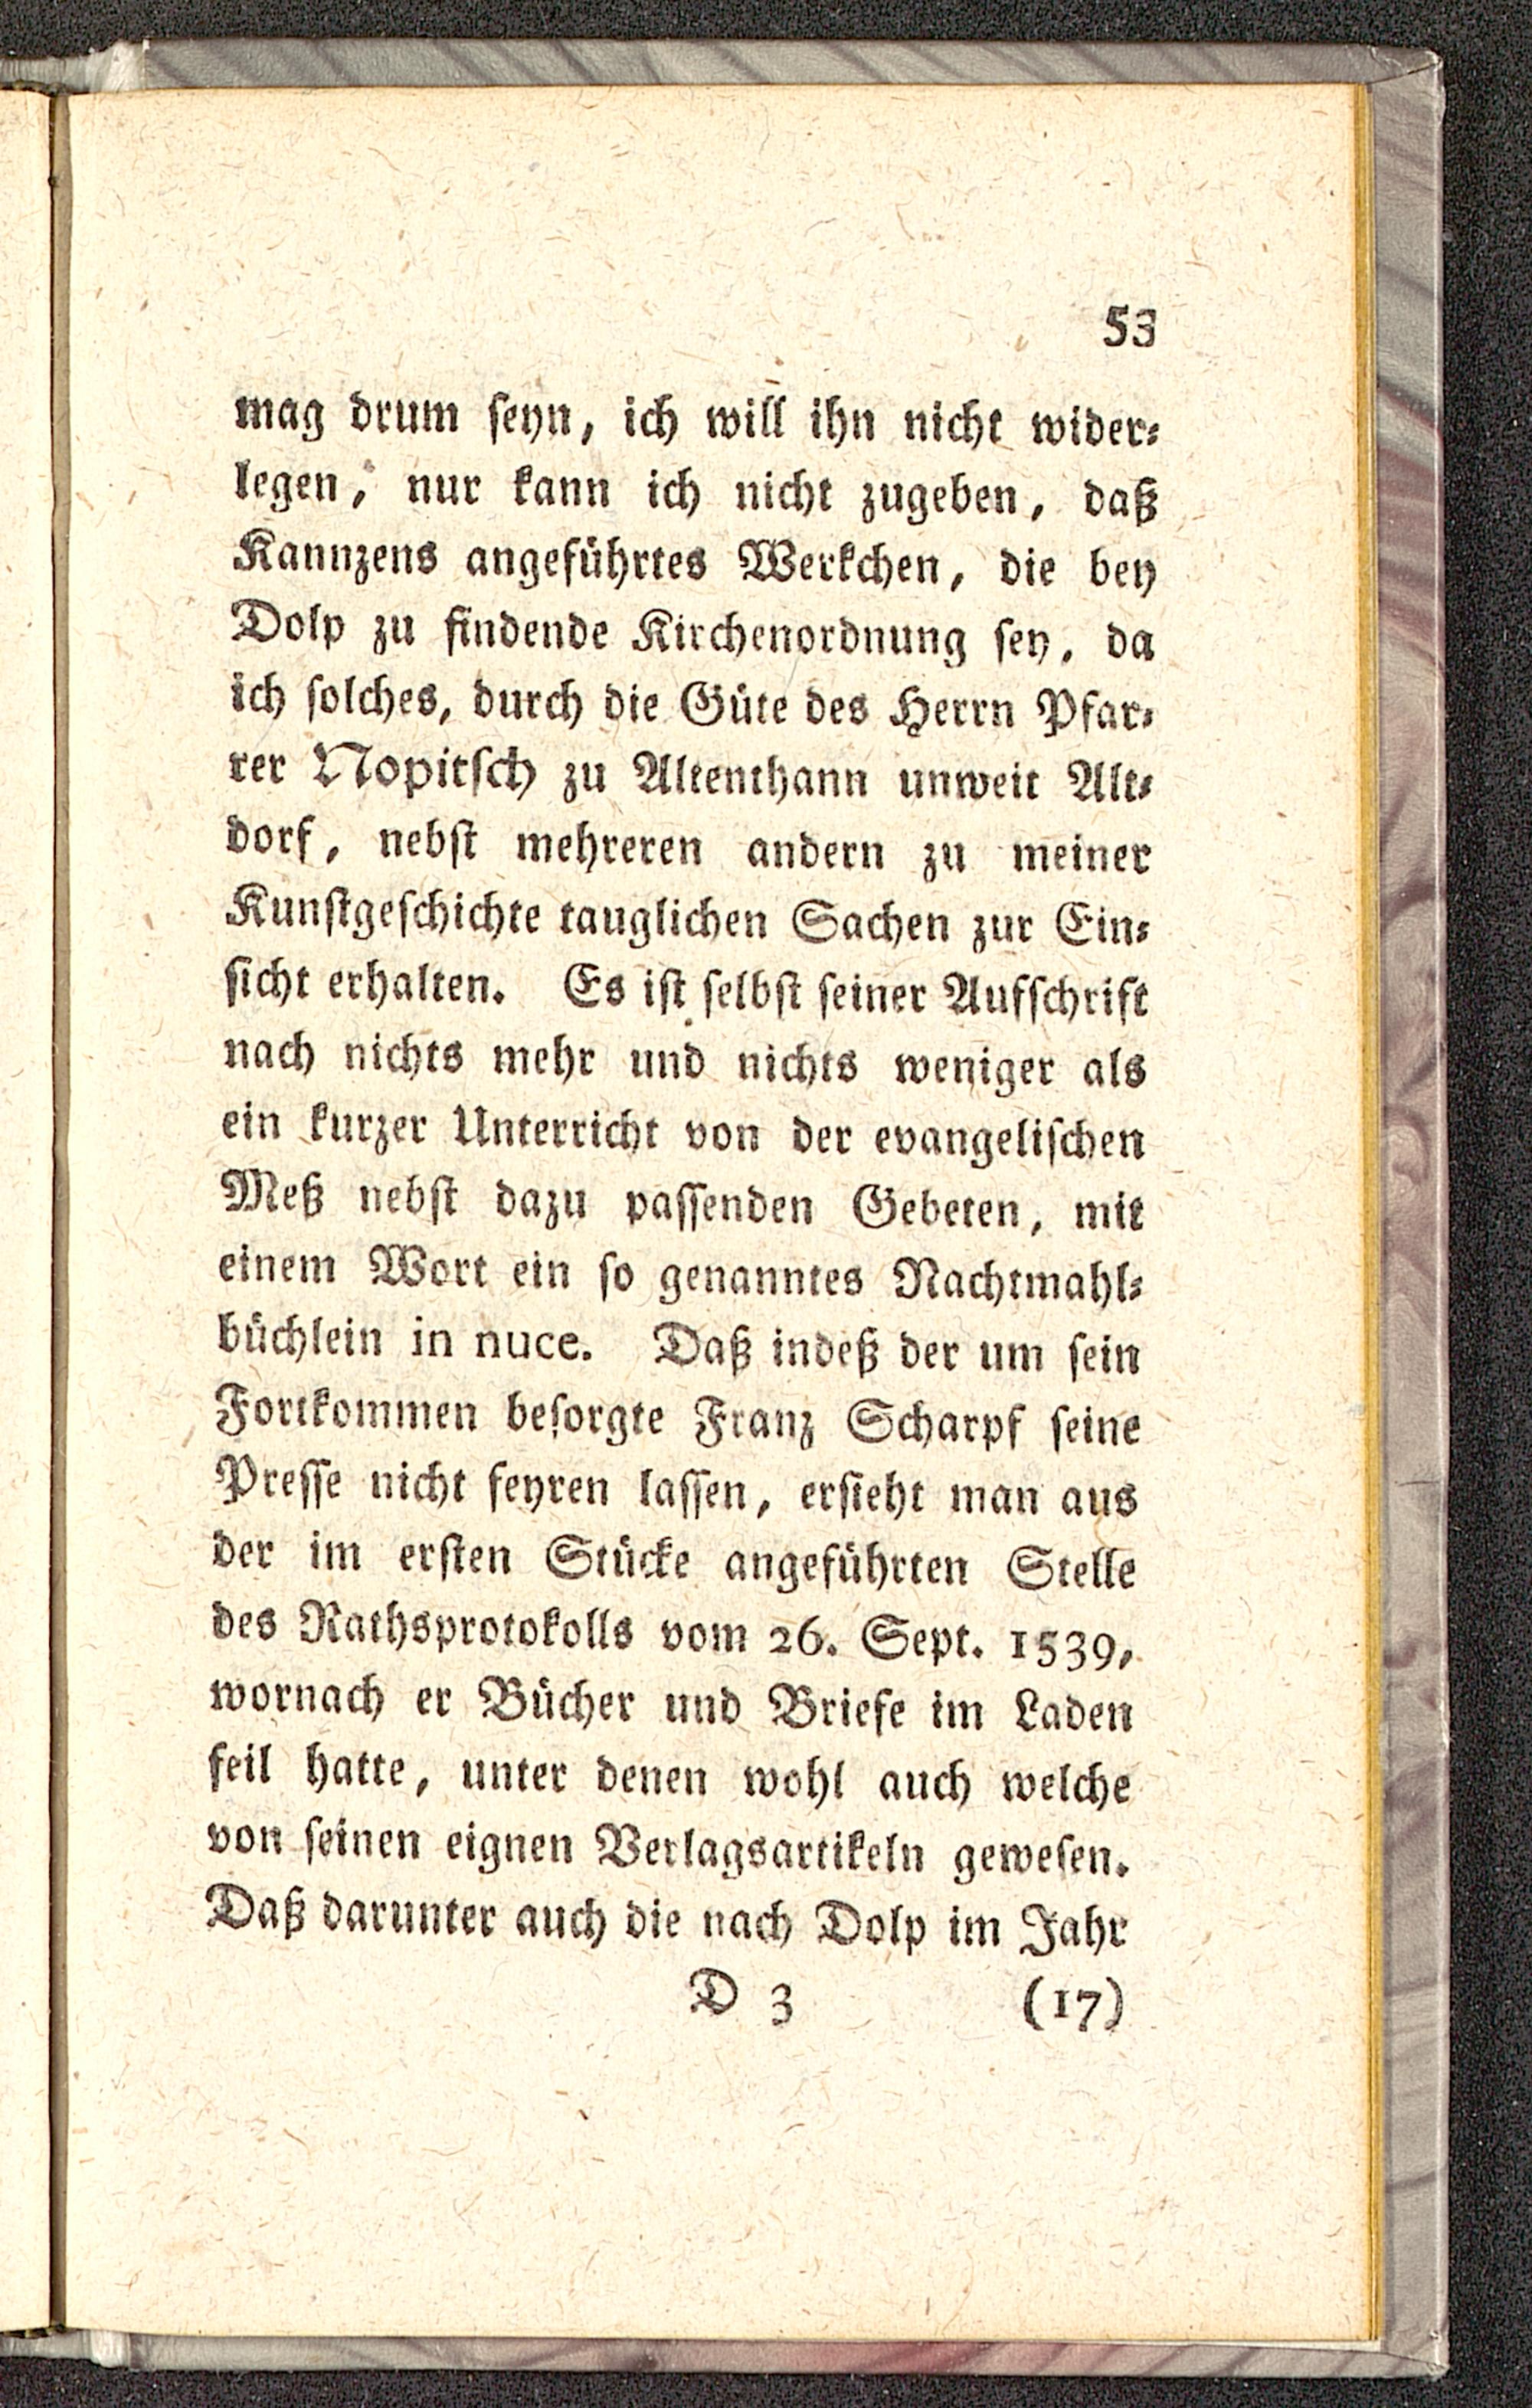 53
mag drum seyn, ich will ihn nicht wider-
legen, nur kann ich nicht zugeben, daß
Kannzens angeführtes Werkchen, die bey
Dolp zu findende Kirchenordnung sey, da
ich solches, durch die Güte des Herrn Pfar-
rer Nopitsch zu Altenthann unweit Alt-
dorf, nebst mehreren andern zu meiner
Kunstgeschichte tauglichen Sachen zur Ein-
sicht erhalten. Es ist selbst seiner Aufschrift
nach nichts mehr und nichts weniger als
ein kurzer Unterricht von der evangelischen
Meß nebst dazu passenden Gebeten, mit
einem Wort ein so genanntes Nachtmahl-
büchlein in nuce. Daß indeß der um sein
Fortkommen besorgte Franz Scharpf seine
Presse nicht feyren lassen, ersieht man aus
der im ersten Stücke angeführten Stelle
des Rathsprotokolls vom 26. Sept. 1539,
wornach er Bücher und Briefe im Laden
feil hatte, unter denen wohl auch welche
von seinen eignen Verlagsartikeln gewesen.
Daß darunter auch die nach Dolp im Jahr
D 3 (17)